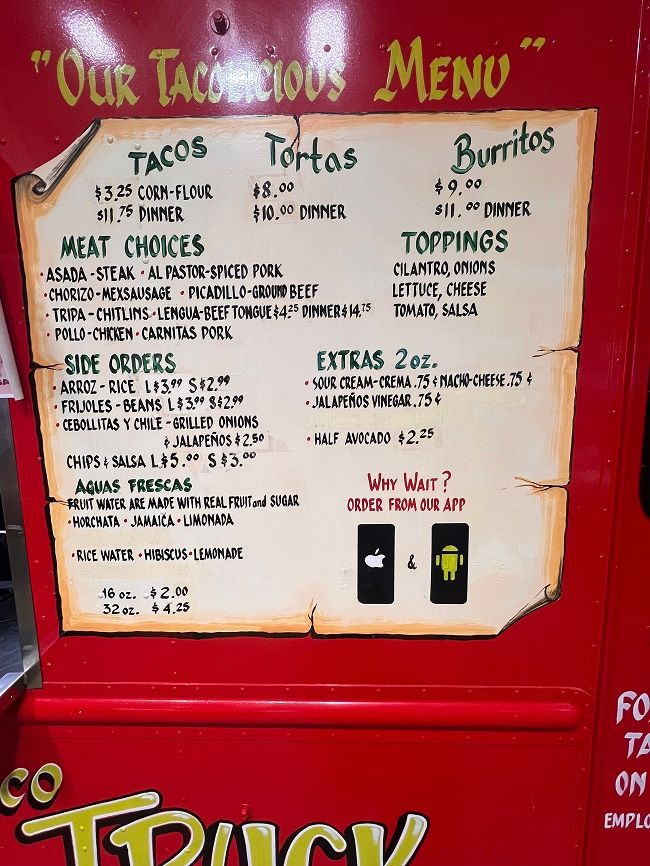 "Our Tacolicious Menu"
TACOS
$3.25 CORN-FLOUR
$11.75 DINNER
Tortas
$8.00
$10.00 DINNER
Burritos
$9.00
$11.00 DINNER
MEAT CHOICES
• ASADA - STEAK • AL PASTOR-SPICED PORK
• CHORIZO - MEXSAUSAGE • PICADILLO-GROUND BEEF
• TRIPA - CHITLINS • LENGUA-BEEF TONGUE $4.25 DINNER $14.75
• POLLO - CHICKEN • CARNITAS PORK
TOPPINGS
CILANTRO, ONIONS
LETTUCE, CHEESE
TOMATO, SALSA
SIDE ORDERS
• ARROZ - RICE L $3.99 S $2.99
• FRIJOLES - BEANS L $3.99 S $2.99
• CEBOLLITAS Y CHILE - GRILLED ONIONS
& JALAPEÑOS $2.50
CHIPS & SALSA L $5.00 S $3.00
EXTRAS 2oz.
• SOUR CREAM-CREMA .75 ¢ NACHO-CHEESE .75 ¢
• JALAPEÑOS VINEGAR .75 ¢
• HALF AVOCADO $2.25
AGUAS FRESCAS
FRUIT WATER ARE MADE WITH REAL FRUIT and SUGAR
• HORCHATA • JAMAICA • LIMONADA
• RICE WATER • HIBISCUS • LEMONADE
16 oz. $2.00
32 oz. $4.25
WHY WAIT?
ORDER FROM OUR APP
&
CO
TRUCK
FO
TA
ON
EMPLO